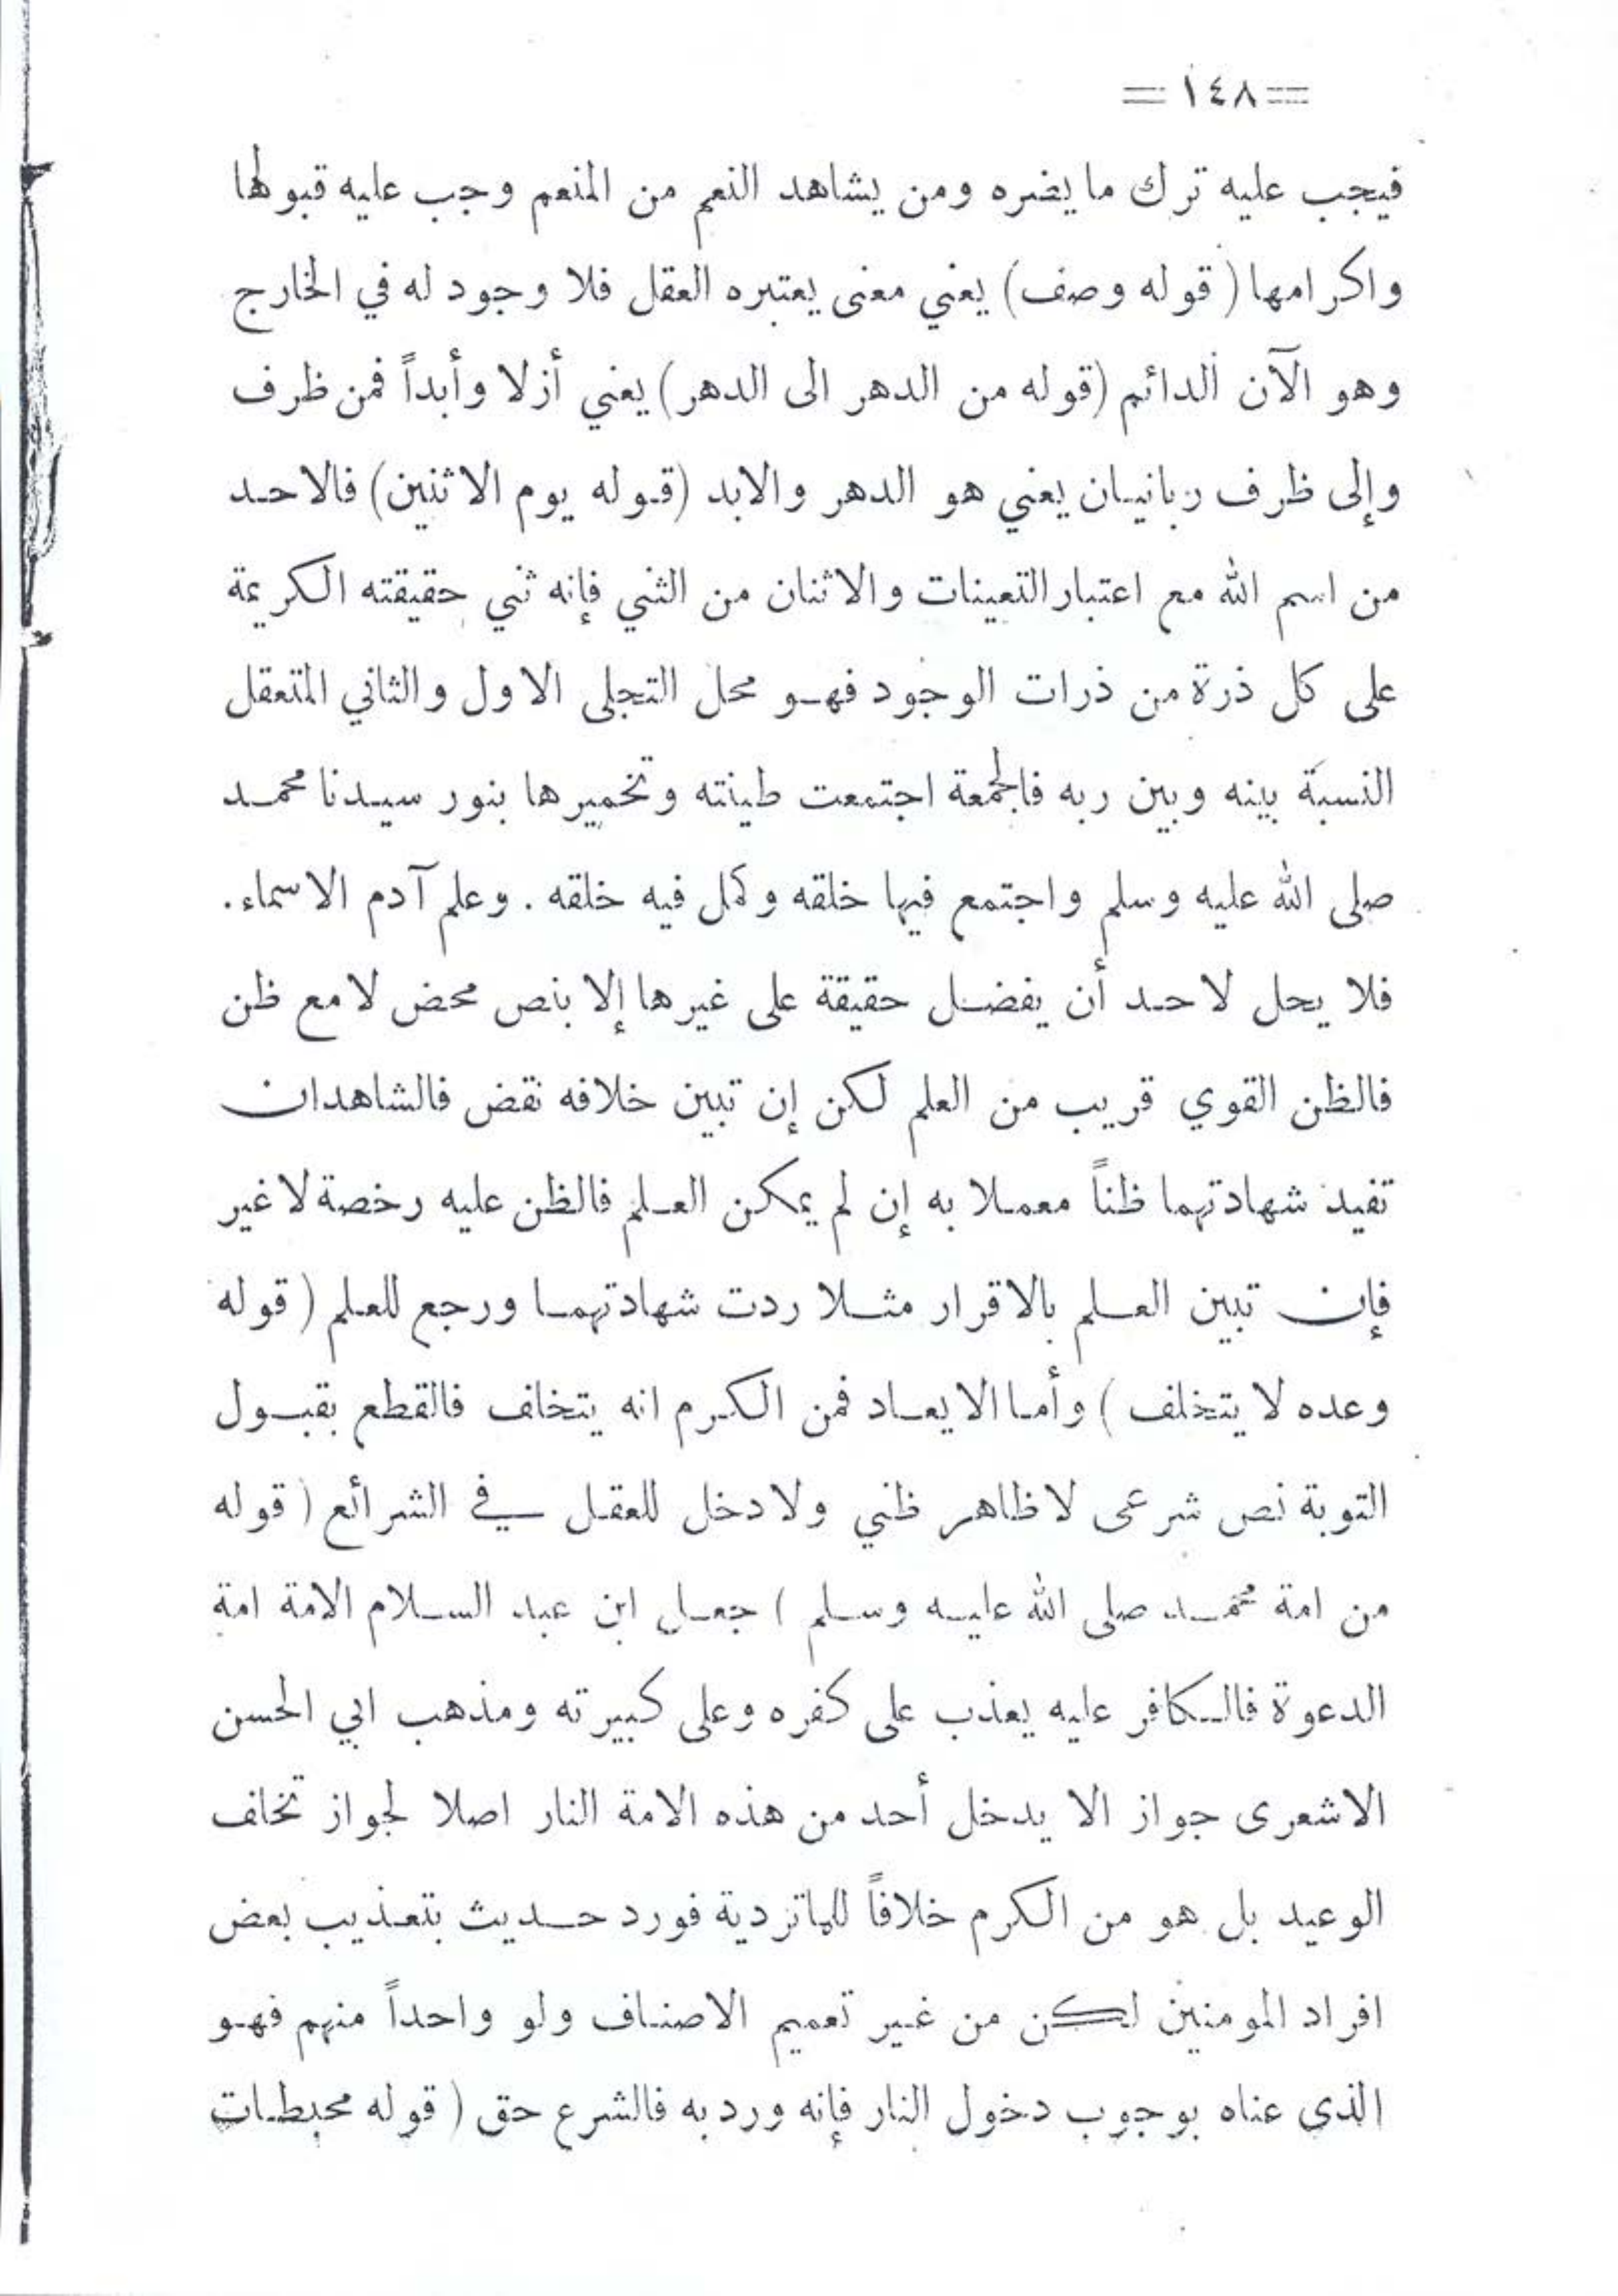 = ١٤٨ =
فيجب عليه ترك ما يضره ومن يشاهد النعم من المنعم وجب عليه قبولها
واكرامها (قوله وصف) يعني معنى يعتبره العقل فلا وجود له في الخارج
وهو الآن الدائم (قوله من الدهر الى الدهر) يعني أزلا وأبداً فمن ظرف
وإلى ظرف ربانيان يعني هو الدهر والابد (قوله يوم الاثنين) فالاحد
من اسم الله مع اعتبار التعينات والاثنان من الثني فإنه ثني حقيقته الكريمة
على كل ذرة من ذرات الوجود فهو محل التجلى الاول والثاني المتعقل
النسبة بينه وبين ربه فالجمعة اجتمعت طينته وتخميرها بنور سيدنا محمد
صلى الله عليه وسلم واجتمع فيها خلقه وكمل فيه خلقه . وعلم آدم الاسماء .
فلا يحل لاحد أن يفضل حقيقة على غيرها إلا بنص محض لا مع ظن
فالظن القوي قريب من العلم لكن إن تبين خلافه نقض فالشاهدان
تفيد شهادتهما ظناً معملا به إن لم يمكن العلم فالظن عليه رخصة لا غير
فإن تبين العلم بالاقرار مثلا ردت شهادتهما ورجع للعلم (قوله
وعده لا يتخلف) وأما الايعاد فمن الكرم انه يتخلف فالقطع بقبول
التوبة نص شرعى لا ظاهر ظني ولا دخل للعقل في الشرائع (قوله
من امة محمد صلى الله عليه وسلم) جعل ابن عبد السلام الامة امة
الدعوة فالكافر عليه يعذب على كفره وعلى كبيرته ومذهب ابي الحسن
الاشعرى جواز الا يدخل أحد من هذه الامة النار اصلا لجواز تخلف
الوعيد بل هو من الكرم خلافاً للماتردية فورد حديث بتعذيب بعض
افراد المومنين لكن من غير تعميم الاصناف ولو واحداً منهم فهو
الذى عناه بوجوب دخول النار فإنه ورد به فالشرع حق (قوله محبطات